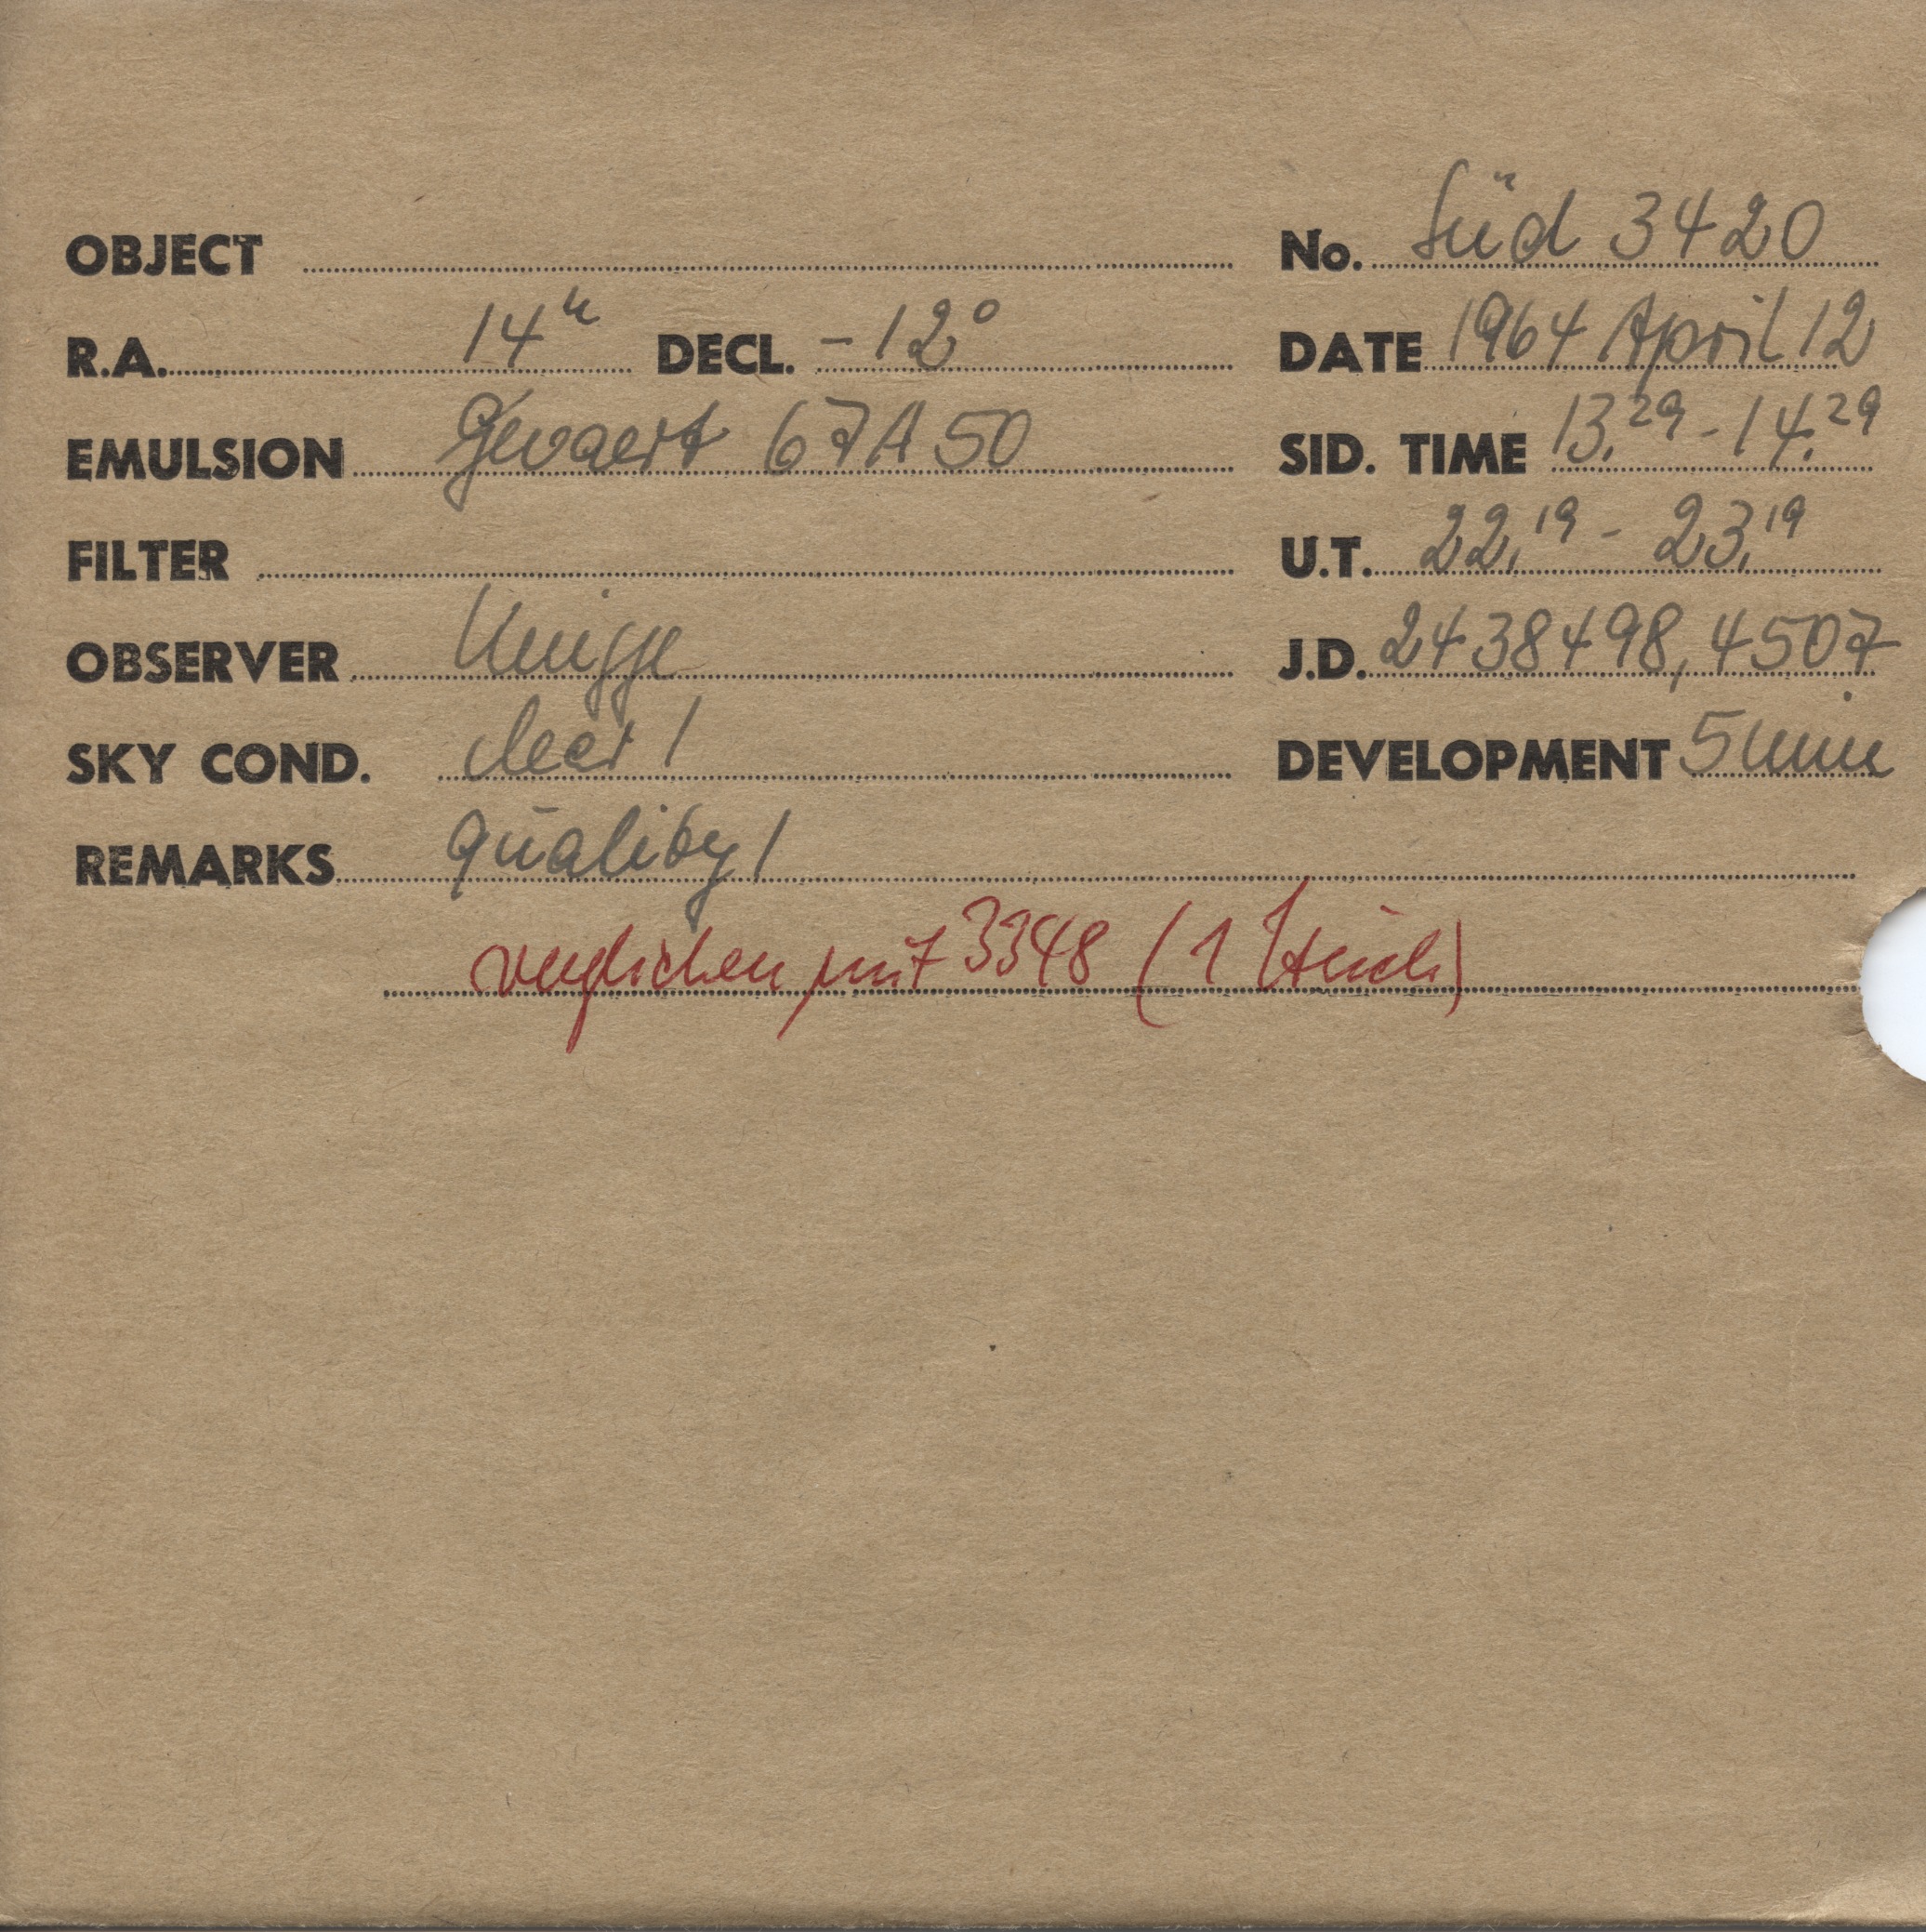 OBJECT No. Süd 3420
R.A. 14h DECL. -12°  DATE 1964 April 12
EMULSION Gevaert 67A50 SID. TIME 13.29 - 14.29
FILTER U.T. 22,19 - 23,19
OBSERVER J.D. 2438498,4507
SKY COND. clear 1 DEVELOPMENT 5 min
REMARKS quality 1
verglichen mit 3348 (1 Stück)